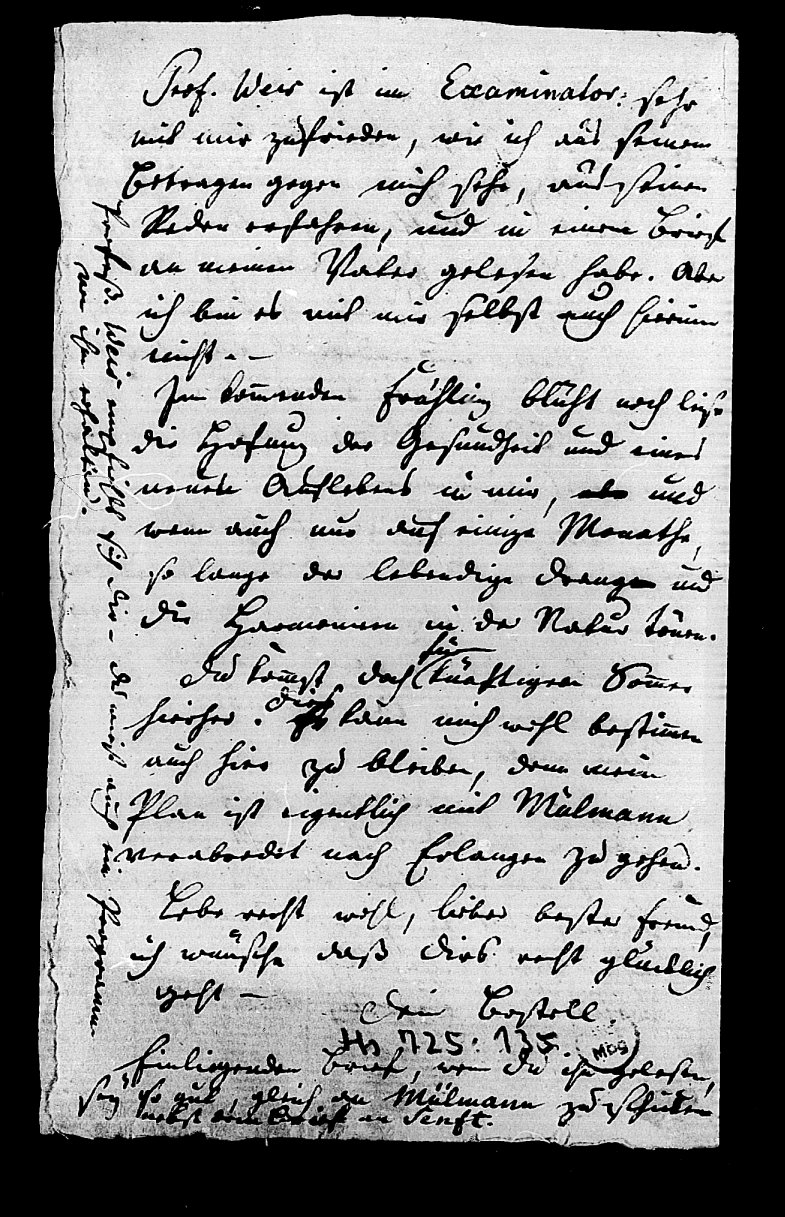 Prof. Weis ist im Examinator: sehr
mit mir zufrieden, wie ich aus seinem
Betragen gegen mich sehe, aus seinen
Reden erfahren, und in einem Brief
an meinen Vater gelesen habe. Aber
ich bin es mit mir selbst auch hierinn
nicht. –
Im kom̅enden Frühling blüht noch leise
die Hofnung der Gesundheit und eines
neuen Auflebens in mir, und
wenn auch nur auf einige Monathe,
so lange der lebendige Drang und
die Harmonien in der Natur tönen.
Du kom̅st doch für künftigen Som̅er
hierher. dies kann mich wohl bestim̅en
auch hier zu bleiben, denn mein
Plan ist eigentlich mit Mülmann
verabredet nach Erlangen zu gehen.
Lebe recht wohl, lieber bester Freund,
ich wünsche daß Dirs recht glücklich
geht –
Dein Bostell.
Hs 725. 135.
Einliegenden Brief, wenn Du ihn gelesen,
sey so gut, gleich an Mülmann zu schicken
nebst dem Brief an Senft.
Profeß. Weis empfielt sich dir – du wirst auch ein Programm
von ihm erhalten.